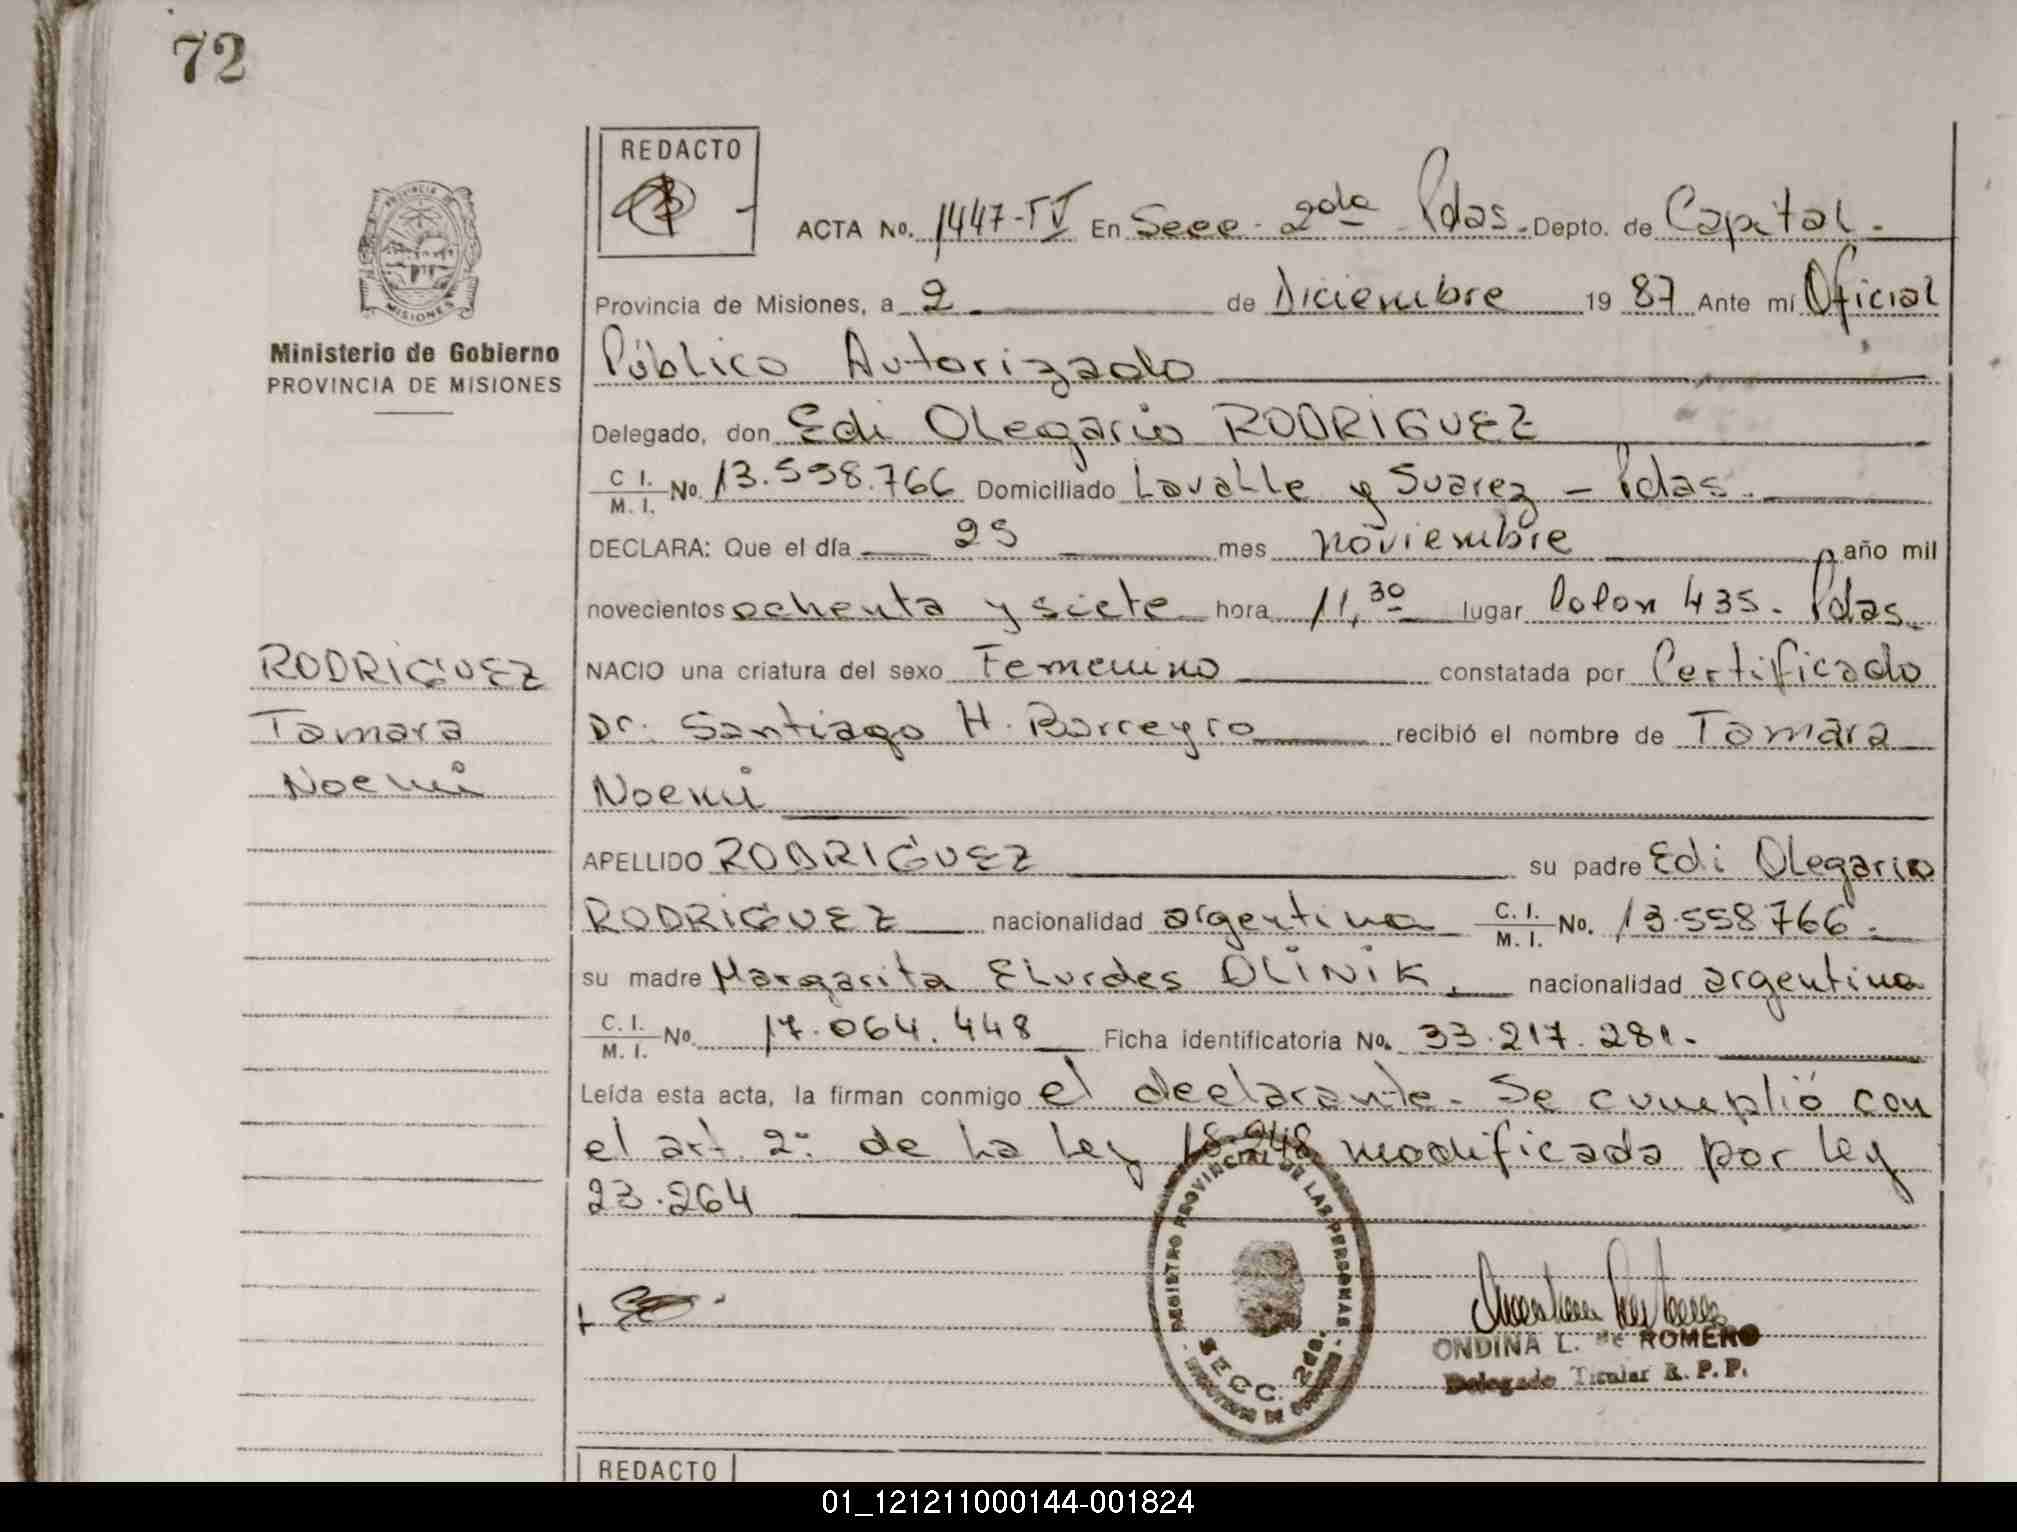 72
REDACTO
ACTA No. 1447-IV En Secc. 2da Pdas. Depto. de Capital.
Provincia de Misiones, a 2 de Diciembre 19 87 Ante mí Oficial
Público Autorizado
PROVINCIA
MISIONES
Ministerio de Gobierno
PROVINCIA DE MISIONES
Delegado, don Edi Olegario RODRIGUEZ
C I. M. I. No. 13.558.766 Domiciliado Lavalle y Suarez - Pdas.
DECLARA: Que el día 25 mes noviembre año mil
novecientos ochenta y siete hora 11,30 lugar Colon 435. Pdas.
RODRIGUEZ
Tamara
Noemi
NACIO una criatura del sexo Femenino constatada por Certificado
Dr. Santiago H. Barreyro recibió el nombre de Tamara
Noemi
APELLIDO RODRIGUEZ su padre Edi Olegario
RODRIGUEZ nacionalidad argentina C. I. M. I. No. 13.558766.
su madre Margarita Elurdes OLINIK. nacionalidad argentina
C. I. M. I. No. 17.064.448 Ficha identificatoria No. 33.217.281.
Leída esta acta, la firman conmigo el declarante. Se cumplió con
el art. 2: de la ley 18.248 modificada por ley
23.264
REGISTRO PROVINCIAL DE LAS PERSONAS
SECC. 2da.
ONDINA L. de ROMERO
Delegado Titular R. P. P.
REDACTO
01_121211000144-001824